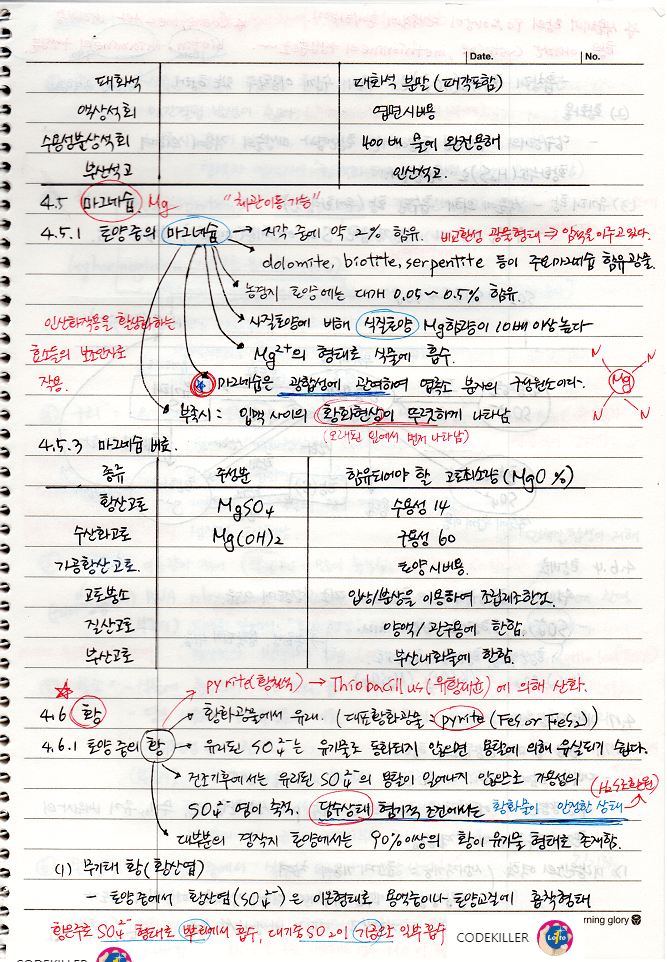 Date. No.
패화석 패화석 분말 (패각포함)
액상석회 엽면시비용
수용성분상석회 400배 물에 완전용해
부산석고 인산석고.
4.5 마그네슘. Mg "체관이동 가능"
4.5.1 토양 중의 마그네슘 → 지각 중에 약 2% 함유. 비교환성 광물형태 ⇒ 압석을 이루고 있다.
dolomite, biotite, serpentite 등이 주요마그네슘 함유광물.
농경지 토양에는 대개 0.05~0.5% 함유.
사질토양에 비해 식질토양 Mg함량이 10배 이상 높다
인산화작용을 활성화하는
효소들의 보조인자로
작용.
Mg2+의 형태로 식물에 흡수.
마그네슘은 광합성에 관여하여 엽록소 분자의 구성원소이다.
N N
Mg
N N
부족시 : 잎맥 사이의 황화현상이 뚜렷하게 나타남
(오래된 잎에서 먼저 나타남)
4.5.3 마그네슘 비료.
종류 주성분 함유되어야 할 고토최소량 (MgO %)
황산고토 MgSO4 수용성 14
수산화고토 Mg(OH)2 구용성 60
가공황산고토. 토양시비용.
고토붕소 입상/분상을 이용하여 조립제조한것.
질산고토 양액/관주용에 한함.
부산고토 부산내화물에 한함.
pyrite(황철석) → Thiobacillus(유황세균)에 의해 산화.
4.6 황 황화광물에서 유래. (대표황화광물 : pyrite (FeS or FeS2))
4.6.1 토양 중의 황 → 유리된 SO4²⁻는 유기물로 동화되지 않으면 용탈에 의해 유실되기 쉽다.
건조기후에서는 유리된 SO4²⁻의 용탈이 일어나지 않으므로 가용성의
(H2S로 환원)
SO4²⁻염이 축적. 담수상태 혐기적 조건에서는 황화물이 안정한 상태
대부분의 경작지 토양에서는 90%이상의 황이 유기물 형태로 존재함.
(1) 무기태 황 (황산염)
- 토양 중에서 황산염(SO4²⁻)은 이온형태로 용액중이나 토양교질에 흡착형태
황은주로 SO4²⁻ 형태로 뿌리에서 흡수, 대기중 SO2의 기공으로 일부 흡수
rning glory
CODEKILLER Lofto
CODEKILLER Lofto